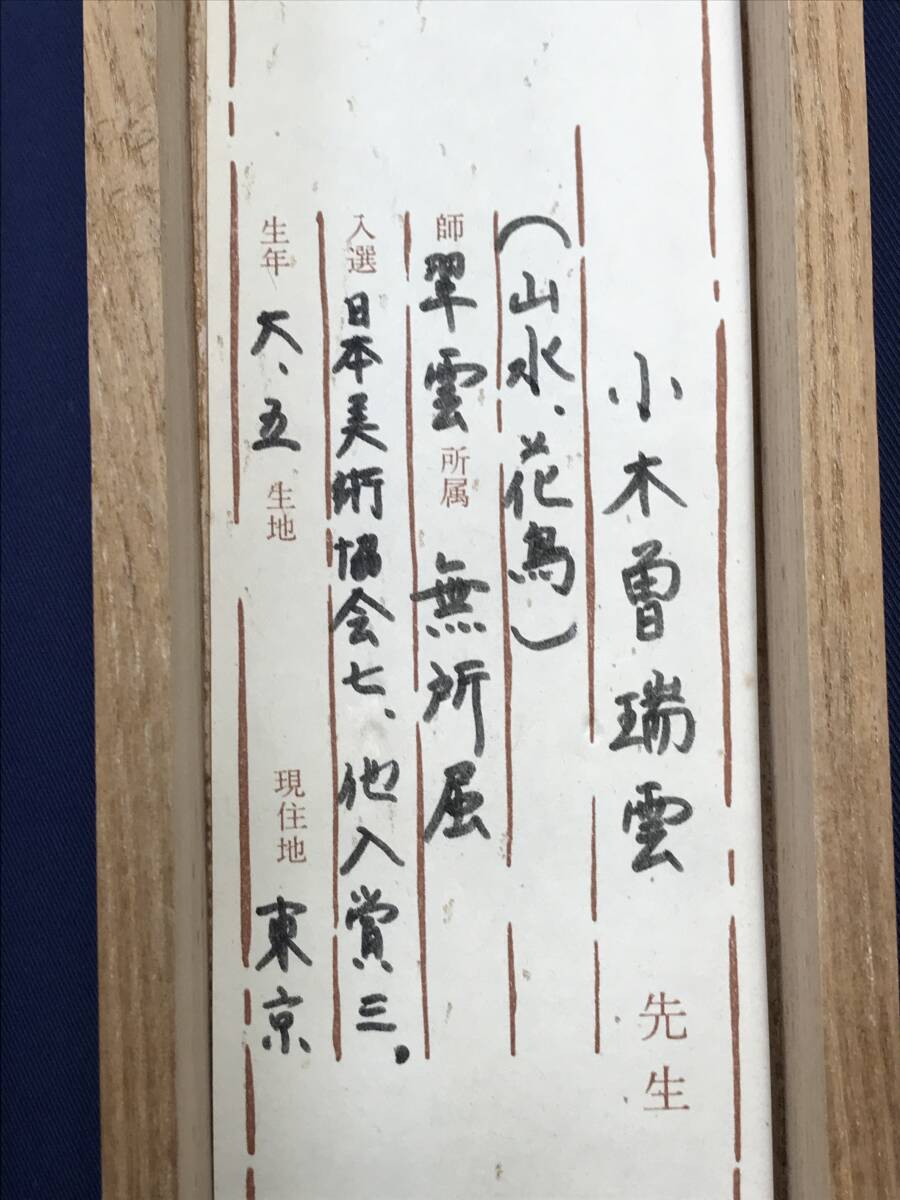 小木曽瑞雲 先生
(山水、花鳥)
師 翠雲 所属 無所属
入選 日本美術協会七、他入賞三.
生年 大、五 生地 現住地 東京